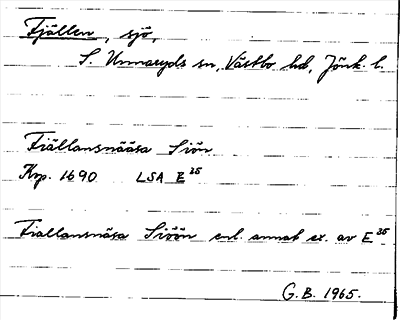 Fjällen, sjö,
S. Unnaryds sn, Västbo hd, Jönk. l.
Fiällansnääsa Siön
Krp. 1690 LSA E³⁵
Fiallansnäsa Siöön enl. annat ex. av E³⁵
G.B. 1965.